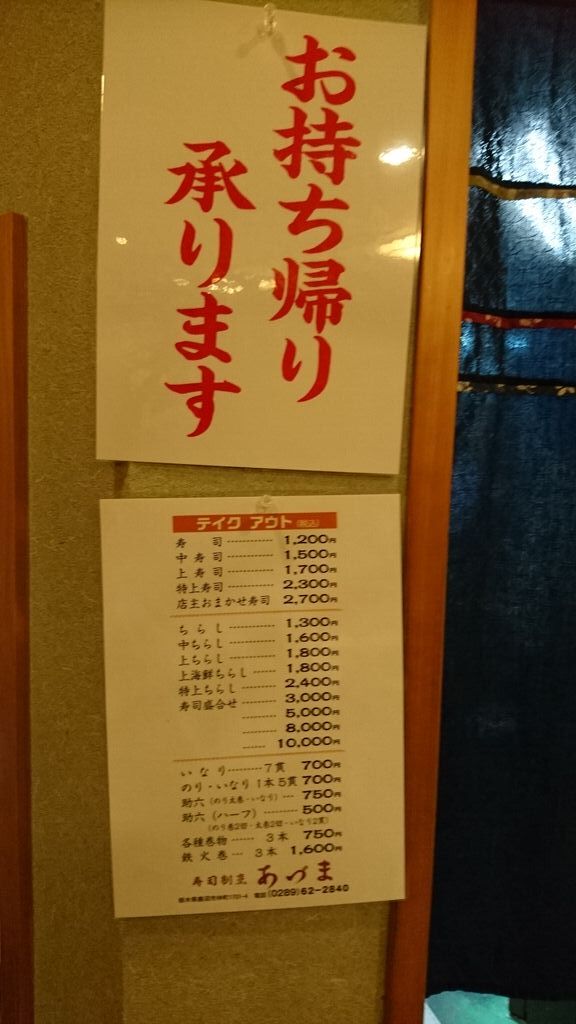 お持ち帰り
承ります
テイク アウト (税込)
寿司 ------------ 1,200円
中寿司 ----------- 1,500円
上寿司 ----------- 1,700円
特上寿司 --------- 2,300円
店主おまかせ寿司 2,700円
ちらし ----------- 1,300円
中ちらし ---------- 1,600円
上ちらし ---------- 1,800円
上海鮮ちらし ------ 1,800円
特上ちらし -------- 2,400円
寿司盛合せ -------- 3,000円
-------- 5,000円
-------- 8,000円
------ 10,000円
いなり---------7貫 700円
のり・いなり 1本5貫 700円
助六 (のり太巻・いなり) --- 750円
助六 (ハーフ) --------- 500円
(のり巻2切・太巻2切・いなり2貫)
各種巻物 ------ 3本 750円
鉄火巻 --- 3本 1,600円
寿司割烹 あづま
電話 (0289)62-2840